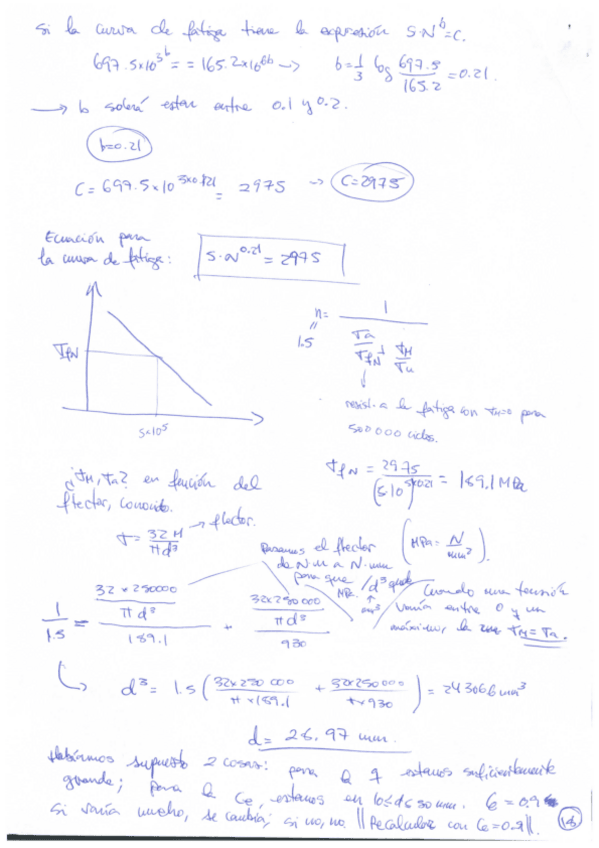 Si la curva de fatiga tiene la expresión S·N^b=C.
697.5x10^3b = = 165.2x10^6b → b = 1/3 log 697.5/165.2 = 0.21.
→ b solerá estar entre 0.1 y 0.2.
b=0.21
C = 697.5x10^3x0.21 = 2975 → C=2975
Ecuación para
la curva de fatiga: S·N^0.21 = 2975
n = 1 / (σa/σfN + σM/σu)
1.5
σfN
5x10^5
resist. a la fatiga con σM=0 para
500000 ciclos.
σfN = 2975/(5·10^5)^0.21 = 189.1 MPa
¿σM, σa? en función del
flector, conocido.
σ = 32 M/πd³ → flector.
Pasamos el flector
de N·m a N·mm
para que /d³ quede
MPa. mm³
(MPa = N/mm²).
Cuando una tensión
varía entre 0 y un
máximo, la σM = σa.
1/1.5 = (32x250000/πd³)/189.1 + (32x250000/πd³)/930
d³ = 1.5 (32x250000/πx189.1 + 32x250000/πx930) = 24306.6 mm³
d = 28.97 mm.
Habíamos supuesto 2 cosas: para la q estamos suficientemente
grande; para la Ce, estamos en 10≤d≤50 mm. Ce = 0.9
si varía mucho, se cambia; si no, no. || Recalcular con Ce=0.9||.